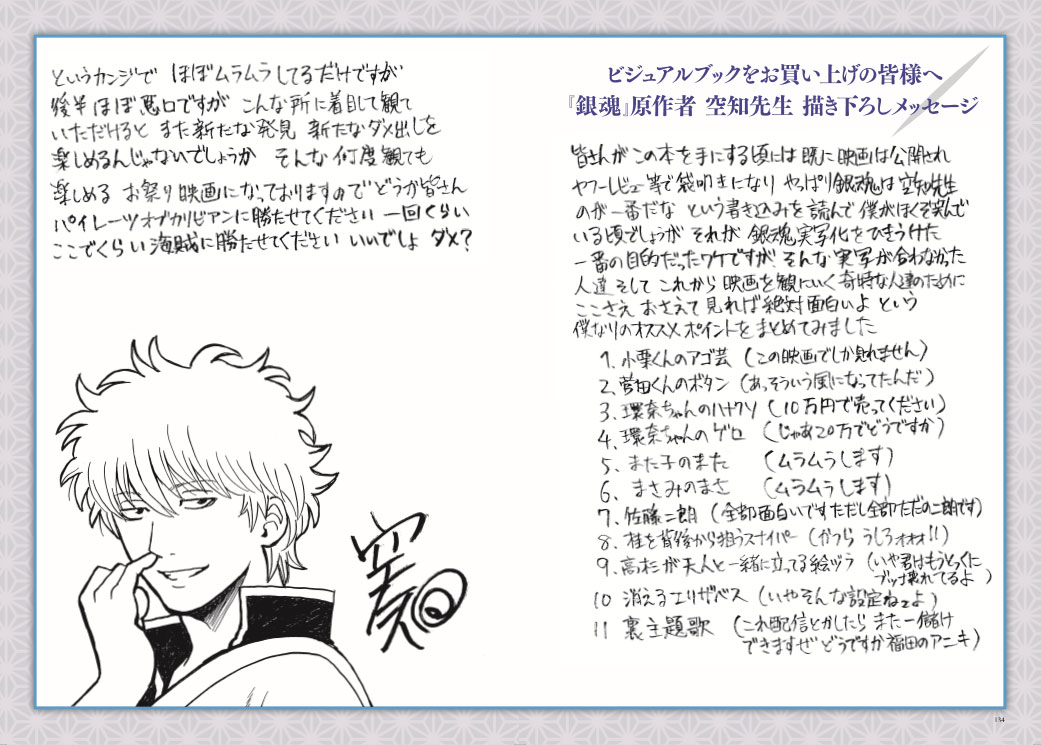 ビジュアルブックをお買い上げの皆様へ
『銀魂』原作者 空知先生 描き下ろしメッセージ
皆さんがこの本を手にする頃には既に映画は公開され
ヤフーレビュー等で袋叩きになり やっぱり銀魂は空知先生
のが一番だな という書き込みを読んで僕がほくそ笑んで
いる頃でしょうが それが 銀魂実写化をひきうけた
一番の目的だったワケですが そんな実写が合わなかった
人達 そして これから映画を観にいく奇特な人達のために
ここさえ おさえて見れば絶対面白いよ という
僕なりのオススメポイントをまとめてみました
1. 小栗くんのアゴ芸 (この映画でしか見れません)
2. 菅田くんのボタン (あっそういう風になってたんだ)
3. 環奈ちゃんのハナクソ (10万円で売ってください)
4. 環奈ちゃんのゲロ (じゃあ20万でどうですか)
5. また子のまた (ムラムラします)
6. まさみのまさ (ムラムラします)
7. 佐藤二朗 (全部面白いです ただし全部ただの二朗です)
8. 桂を背後から狙うスナイパー (かつら うしろォォォ!!)
9. 高杉が天人と一緒に立ってる絵ヅラ (いや君はもうとっくに
ブッ壊れてるよ)
10 消えるエリザベス (いやそんな設定ねェよ)
11 裏主題歌 (これ配信とかしたら また一儲け
できますぜ どうですか福田のアニキ)
というカンジで ほぼムラムラしてるだけですが
後半ほぼ悪口ですが こんな所に着目して観て
いただけると また新たな発見 新たなダメ出しを
楽しめるんじゃないでしょうか そんな何度観ても
楽しめる お祭り映画になっておりますので どうか皆さん
パイレーツオブカリビアンに勝たせてください 一回くらい
ここでくらい海賊に勝たせてください いいでしょ ダメ?
空知
134